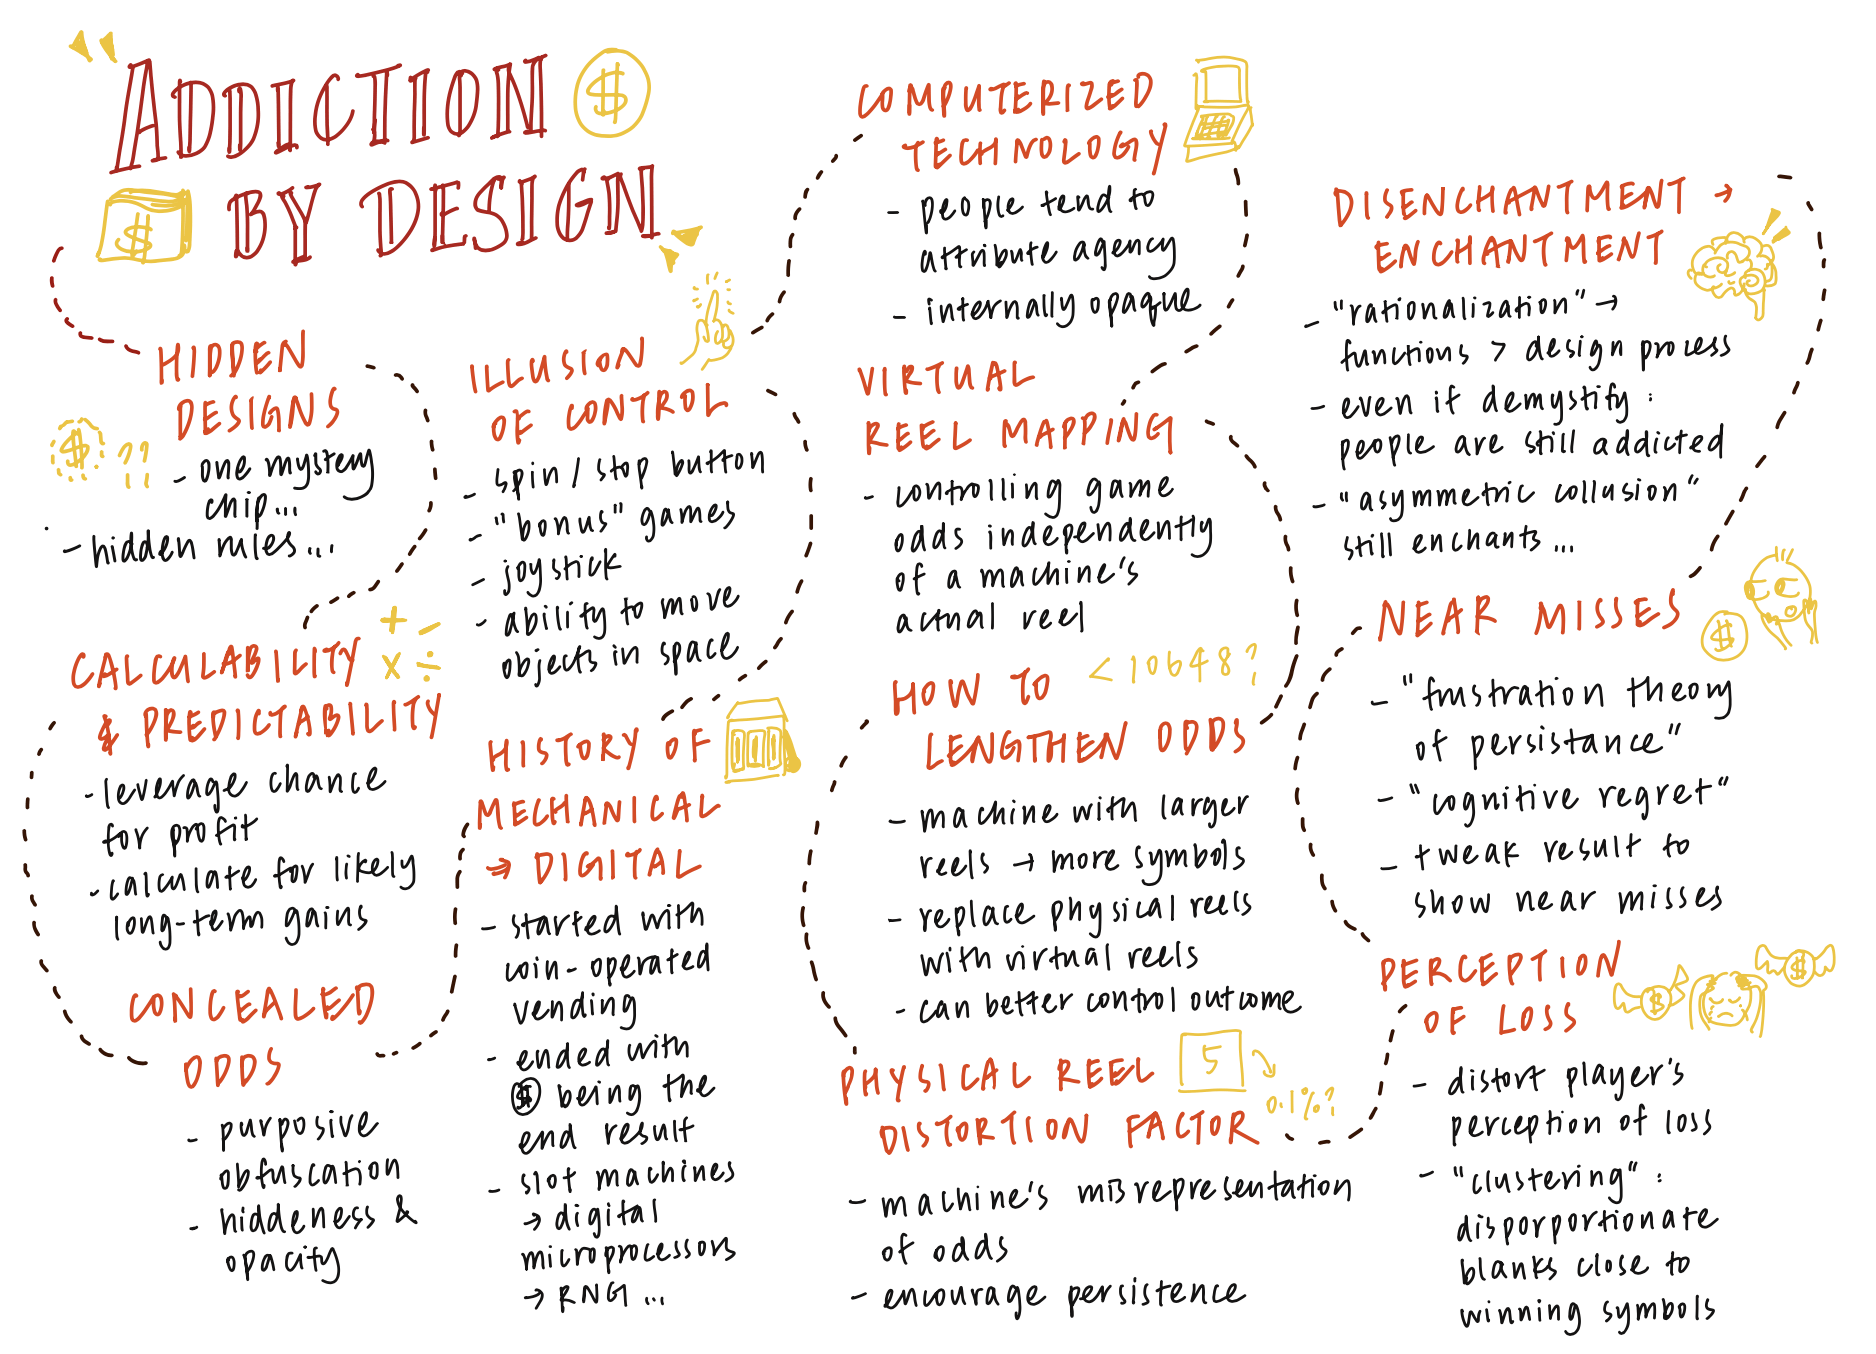 ADDICTION $
$ BY DESIGN
HIDDEN
DESIGNS
$ ??
- one mystery
chip...
- hidden rules...
CALCULABILITY
& PREDICTABILITY
+ -
x ÷
- leverage chance
for profit
- calculate for likely
long-term gains
CONCEALED
ODDS
- purposive
obfuscation
- hiddeness &
opacity
HISTORY OF
MECHANICAL
→ DIGITAL
- started with
coin-operated
vending
- ended with
$ being the
end result
- slot machines
→ digital
microprocessors
→ RNG...
ILLUSION
OF CONTROL
- spin / stop button
- "bonus" games
- joystick
- ability to move
objects in space
COMPUTERIZED
TECHNOLOGY
- people tend to
attribute agency
- internally opaque
VIRTUAL
REEL MAPPING
- controlling game
odds independently
of a machine's
actual reel
HOW TO
LENGTHEN ODDS
<10648?
- machine with larger
reels → more symbols
- replace physical reels
with virtual reels
- can better control outcome
PHYSICAL REEL
DISTORTION FACTOR
5
0.1%?
- machine's misrepresentation
of odds
- encourage persistence
PERCEPTION
OF LOSS
$ $
- distort player's
perception of loss
- "clustering":
disporportionate
blanks close to
winning symbols
NEAR MISSES
$
- "frustration theory
of persistance"
- "cognitive regret"
- tweak result to
show near misses
DISENCHANTMENT →
ENCHANTMENT
- "rationalization" →
functions > design process
- even if demystify:
people are still addicted
- "asymmetric collusion"
still enchants...